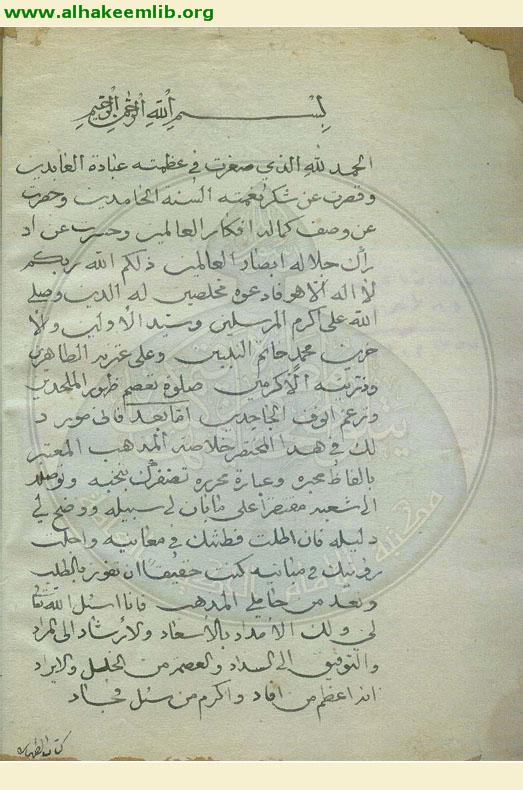 www.alhakeemlib.org
بسم الله الرحمن الرحيم
الحمد لله الذي صغرت في عظمته عبادة العابدين
وقصرت عن شكر نعمته السنة الحامدين وحصرت
عن وصف كماله افكار العالمين وحسرت عن اد
راك جلاله ابصار العالمين ذلكم الله ربكم
لا اله الا هو فادعوه مخلصين له الدين وصلى
الله على اكرم المرسلين وسيد الاولين والا
خرين محمد خاتم النبيين وعلى عترته الطاهرين
وذريته الاكرمين صلوة تقصم ظهور الملحدين
وترغم انوف الجاحدين اما بعد فاني مورد
لك في هذا المختصر خلاصة المذهب المعتبر
بالفاظ محبره وعبارة محرره تظفرك بنخبه وتوصلك
الى شعبه مقتصرا على ما بان لي سبيله ووضح لي
دليله فان اطلت فطنتك في معانيه واجلت
رويتك في مبانيه كنت حقيقا ان تفوز بالطلب
وتعد من حاملي المذهب فانا اسئل الله تعالى
لي ولك الامداد بالاسعاد والارشاد الى المراد
والتوفيق الى السداد والعصم من الخلل والايراد
انه اعظم من افاد واكرم من سئل فجاد
كتاب الطهارة